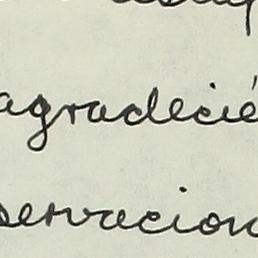 agradecié
servacion